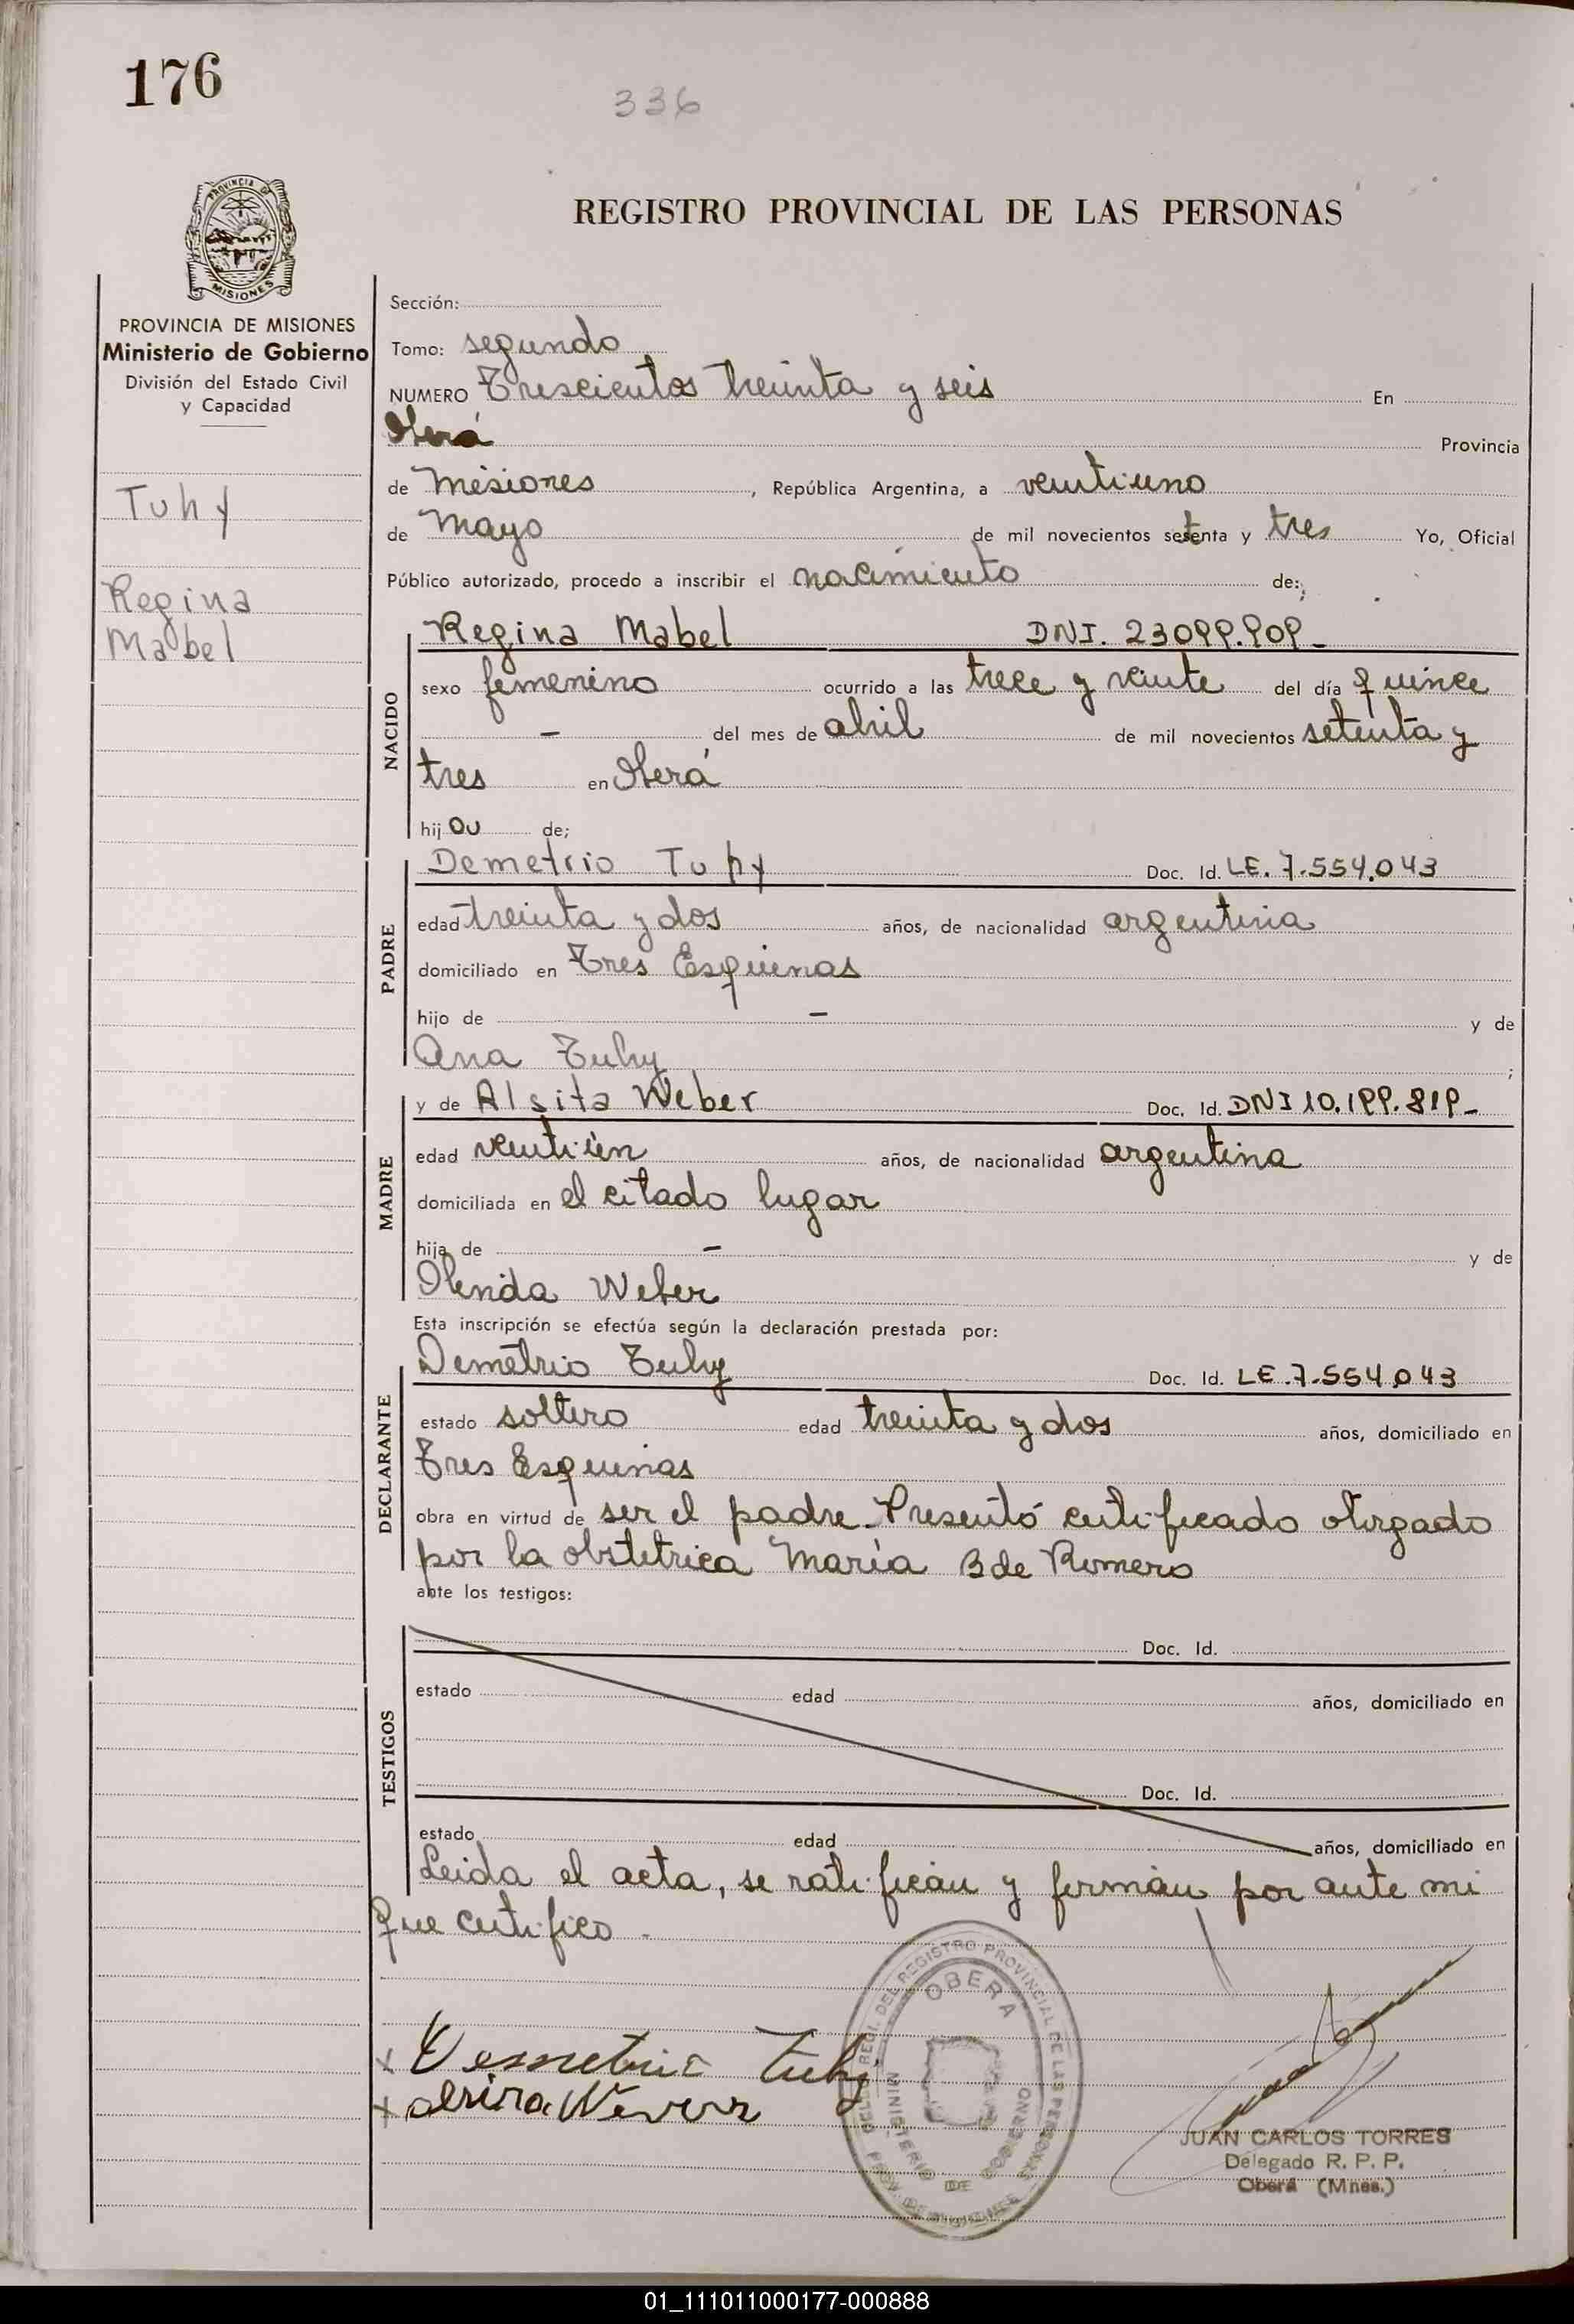 176
336
REGISTRO PROVINCIAL DE LAS PERSONAS
PROVINCIA DE MISIONES
Ministerio de Gobierno
División del Estado Civil
y Capacidad
Tuhy
Regina
Mabel
Sección:
Tomo: segundo
NUMERO Trescientos treinta y seis En
Oberá Provincia
de Misiones, República Argentina, a veintiuno
de Mayo de mil novecientos setenta y tres Yo, Oficial
Público autorizado, procedo a inscribir el nacimiento de:
NACIDO
Regina Mabel DNI. 23099.909.-
sexo femenino ocurrido a las trece y veinte del día quince
- del mes de abril de mil novecientos setenta y
tres en Oberá
hij de;
PADRE
Demetrio Tuhy Doc. Id. LE. 7.554.043
edad treinta y dos años, de nacionalidad argentina
domiciliado en Tres Esquinas
hijo de - y de
Ana Tuhy ;
MADRE
y de Alsita Weber Doc. Id. DNI 10.199.819-
edad veintiún años, de nacionalidad argentina
domiciliada en el citado lugar
hija de - y de
Olenida Weber
Esta inscripción se efectúa según la declaración prestada por:
DECLARANTE
Demetrio Tuhy Doc. Id. LE.7.554.043
estado soltero edad treinta y dos años, domiciliado en
Tres Esquinas
obra en virtud de ser el padre. Presentó certificado otorgado
por la obstetrica María B de Romero
ante los testigos:
TESTIGOS
Doc. Id.
estado edad años, domiciliado en
Doc. Id.
estado edad años, domiciliado en
Leida el acta, se ratifican y firman por ante mi
que certifico.
x Demetrio Tuhy
x
OBERA
REGISTRO PROVINCIAL DE LAS PERSONAS
MINISTERIO DE GOBIERNO
JUAN CARLOS TORRES
Delegado R. P. P.
Oberá (Mnes.)
01_111011000177-000888